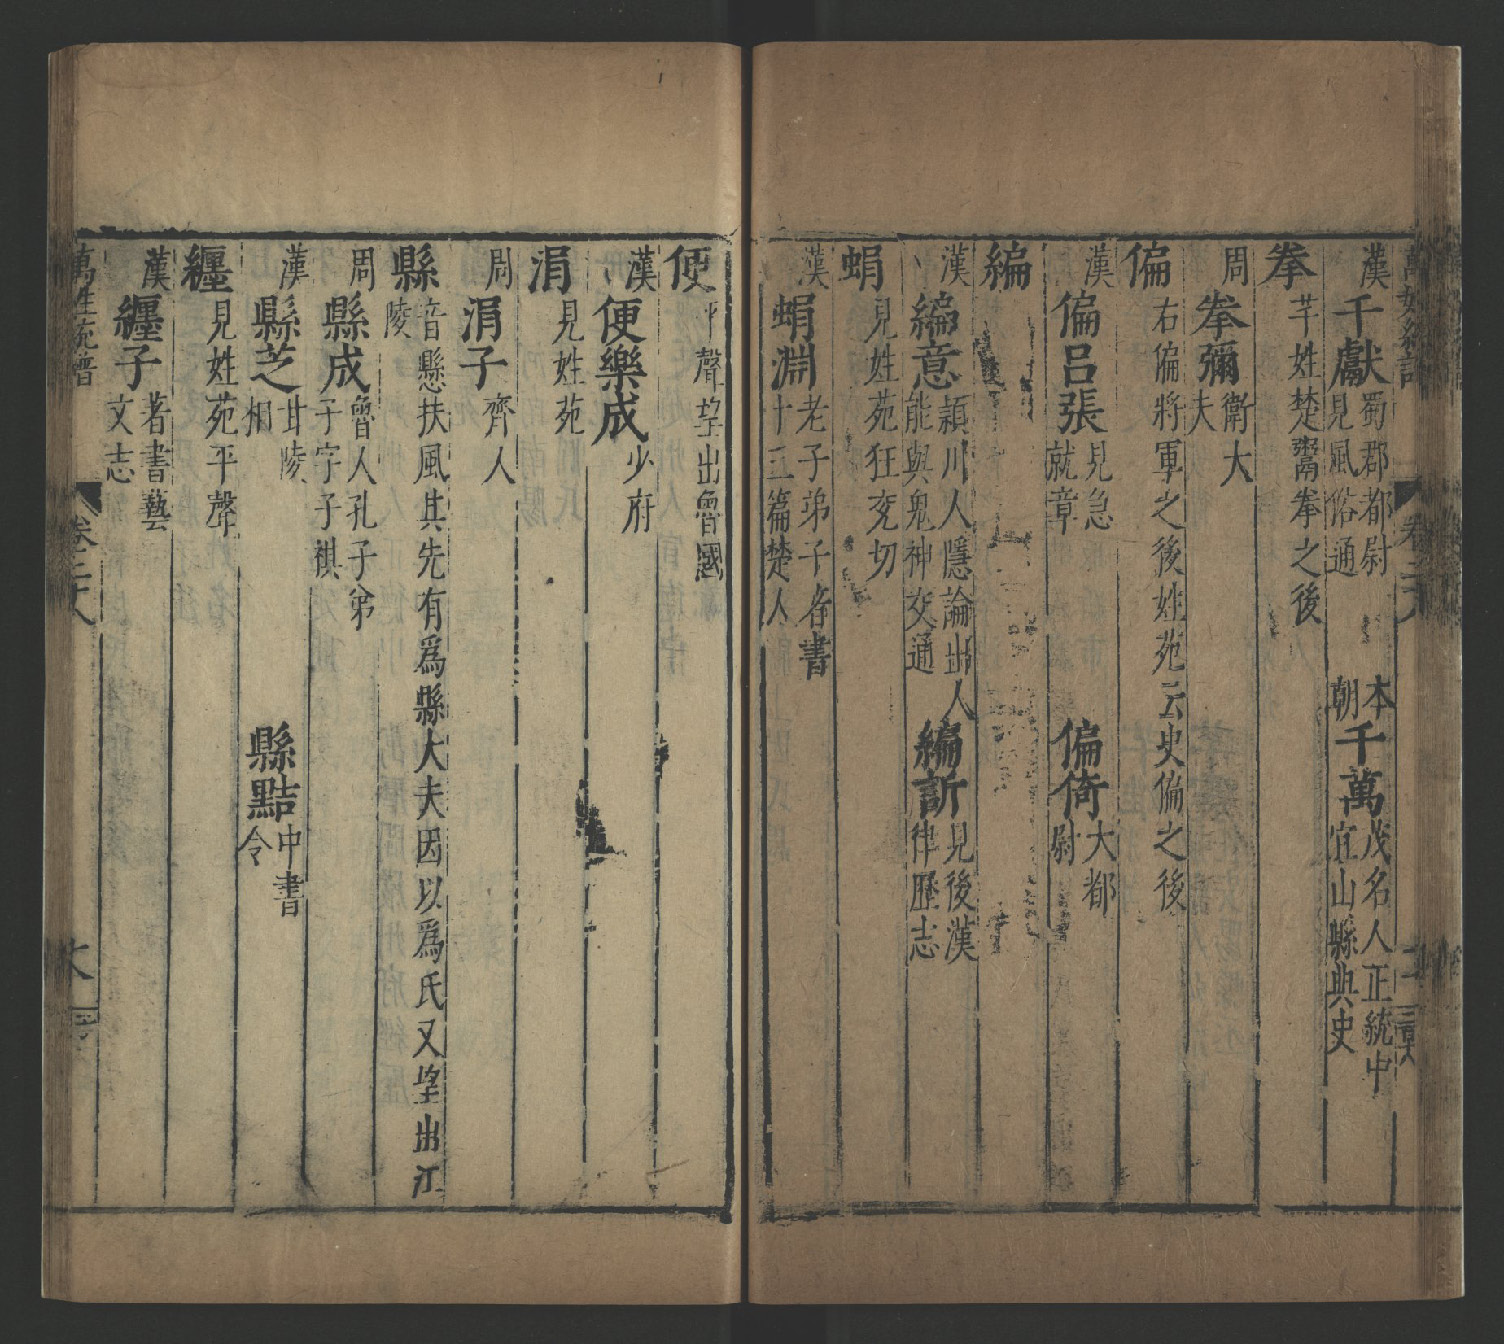 漢 千獻 蜀郡都尉見風俗通 本朝 千萬 茂名人正統中宜山縣典史
拳 芊姓楚鬻拳之後
周 拳彌 衛大夫
偏 右偏將軍之後姓苑云史偏之後
漢 偏呂張 見急就章 偏倚 大都尉
編
漢 編意 頴川人隱論出人能與鬼神交通 編訢 見後漢律歷志
蜎 見姓苑狂兖切
漢 蜎淵 老子弟子者書十三篇楚人
便 平聲望出魯國
漢 便樂成 少府
涓 見姓苑
周 涓子 齊人
縣 音懸扶風其先有爲縣大夫因以爲氏又望出江陵
周 縣成 魯人孔子弟子字子祺
漢 縣芝 甘陵相 縣點 中書令
纒 見姓苑平聲
漢 纒子 著書藝文志
萬姓統譜 卷二六